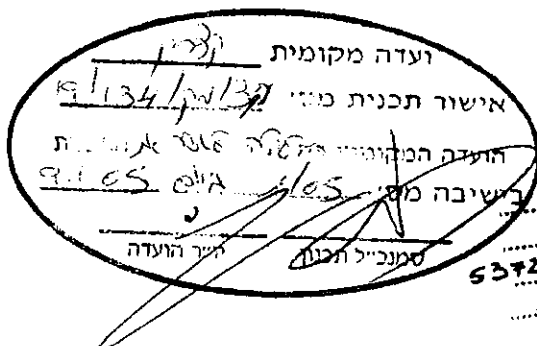 ועדה מקומית קצרין
אישור תכנית מס' קצ/מק/19/134
הועדה המקומית החליטה לאשר את
בישיבה מס' 05/ ביום 9.1.05
סמנכ"ל תכנון יו"ר הועדה
5372